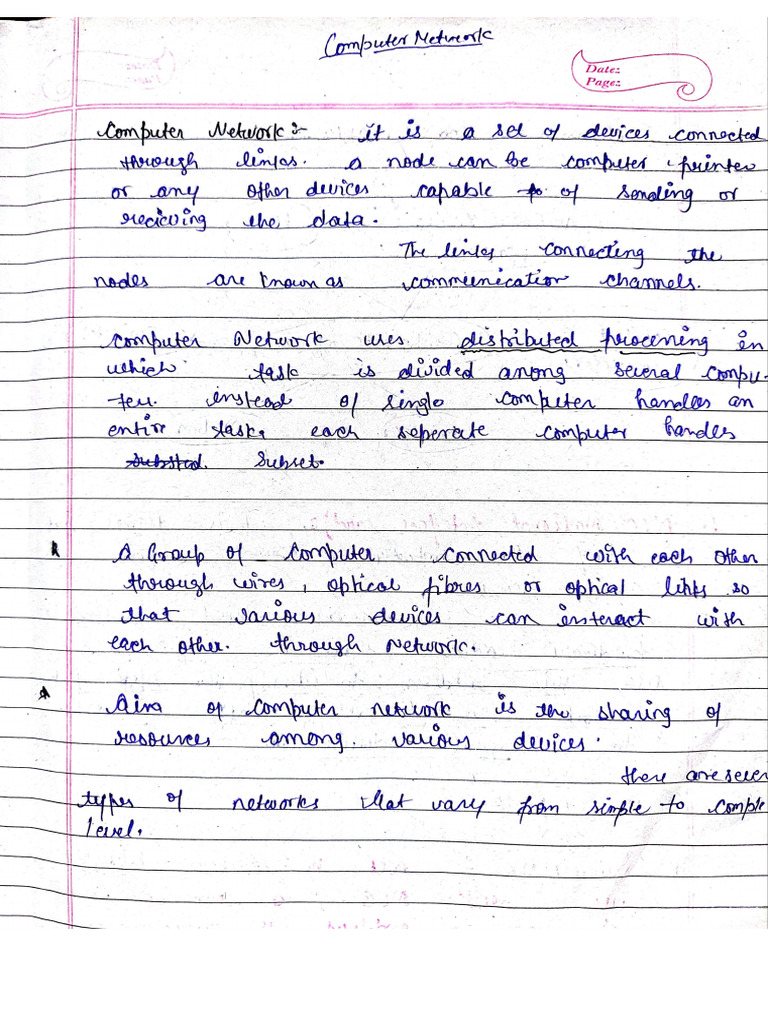 Computer Network
Date:
Page:
Computer Network:- it is a set of devices connected
through links. a node can be computer, printer
or any other devices capable of sending or
reciving the data.
The links connecting the
nodes are known as communication channels.
Computer Network uses distributed processing in
which task is divided among several compu-
ter. instead of single computer handles an
entire task, each seperate computer handles
subset.
A Group of computer connected with each other
through wires, optical fibres or optical links so
that various devices can interact with
each other. through Network.
Aim of computer network is the sharing of
resources among various devices.
there are sever
types of networks that vary from simple to comple
level.